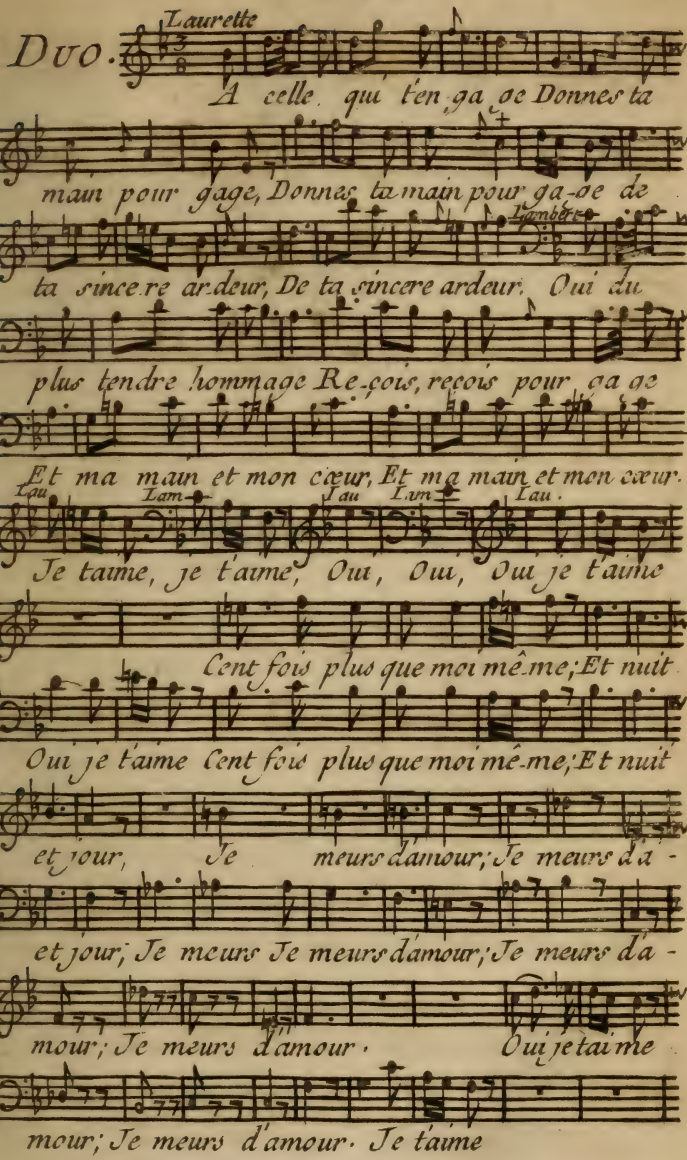 Laurette
Duo.
A celle qui t'en ga ge Donnes ta
main pour gage, Donnes ta main pour ga-ge de
Lambert
ta since.re ar-deur, De ta sincere ardeur. Oui du
plus tendre hommage Re-çois, reçois pour ga ge
Et ma main et mon cœur, Et ma main et mon cœur.
Lau Lam Lau Lam Lau.
Je t'aime, je t'aime, Oui, Oui, Oui je t'aime
Cent fois plus que moi mê-me; Et nuit
Oui je t'aime Cent fois plus que moi mê-me; Et nuit
et jour, Je meurs d'amour; Je meurs d'a-
et jour; Je meurs Je meurs d'amour; Je meurs d'a-
mour; Je meurs d'amour. Oui je t'ai me
mour; Je meurs d'amour. Je t'aime